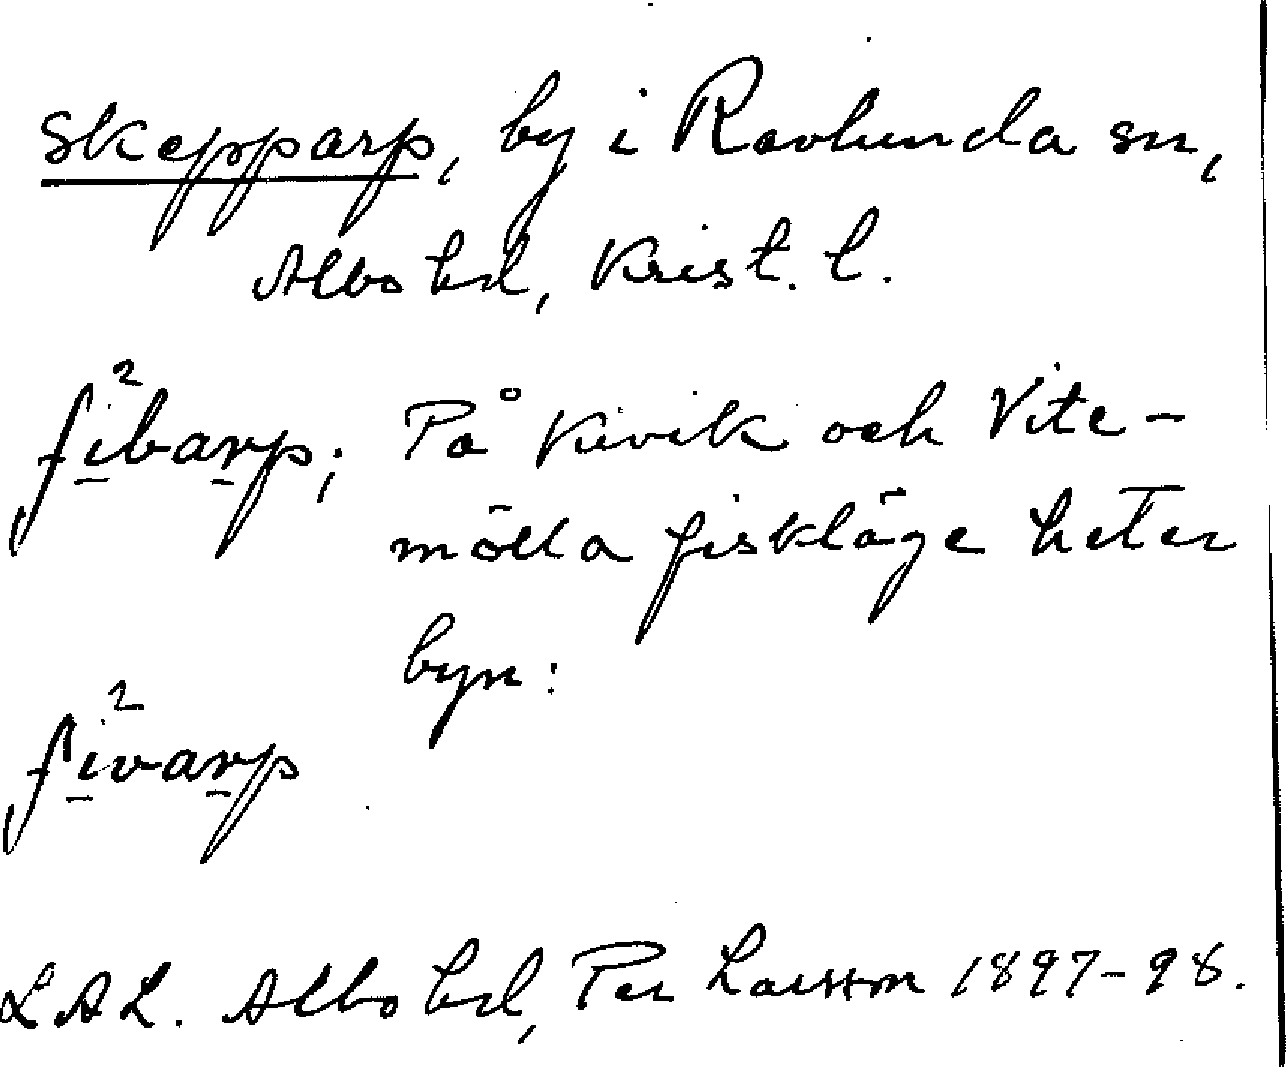 Skepparp, by i Ravlunda sn,
Albo hd, Krist. l.
ʃi²barp; På Kivik och Vite-
mölla fiskläge heter
byn:
ʃi²varp
LAL. Albo hd, Per Larsson 1897-98.